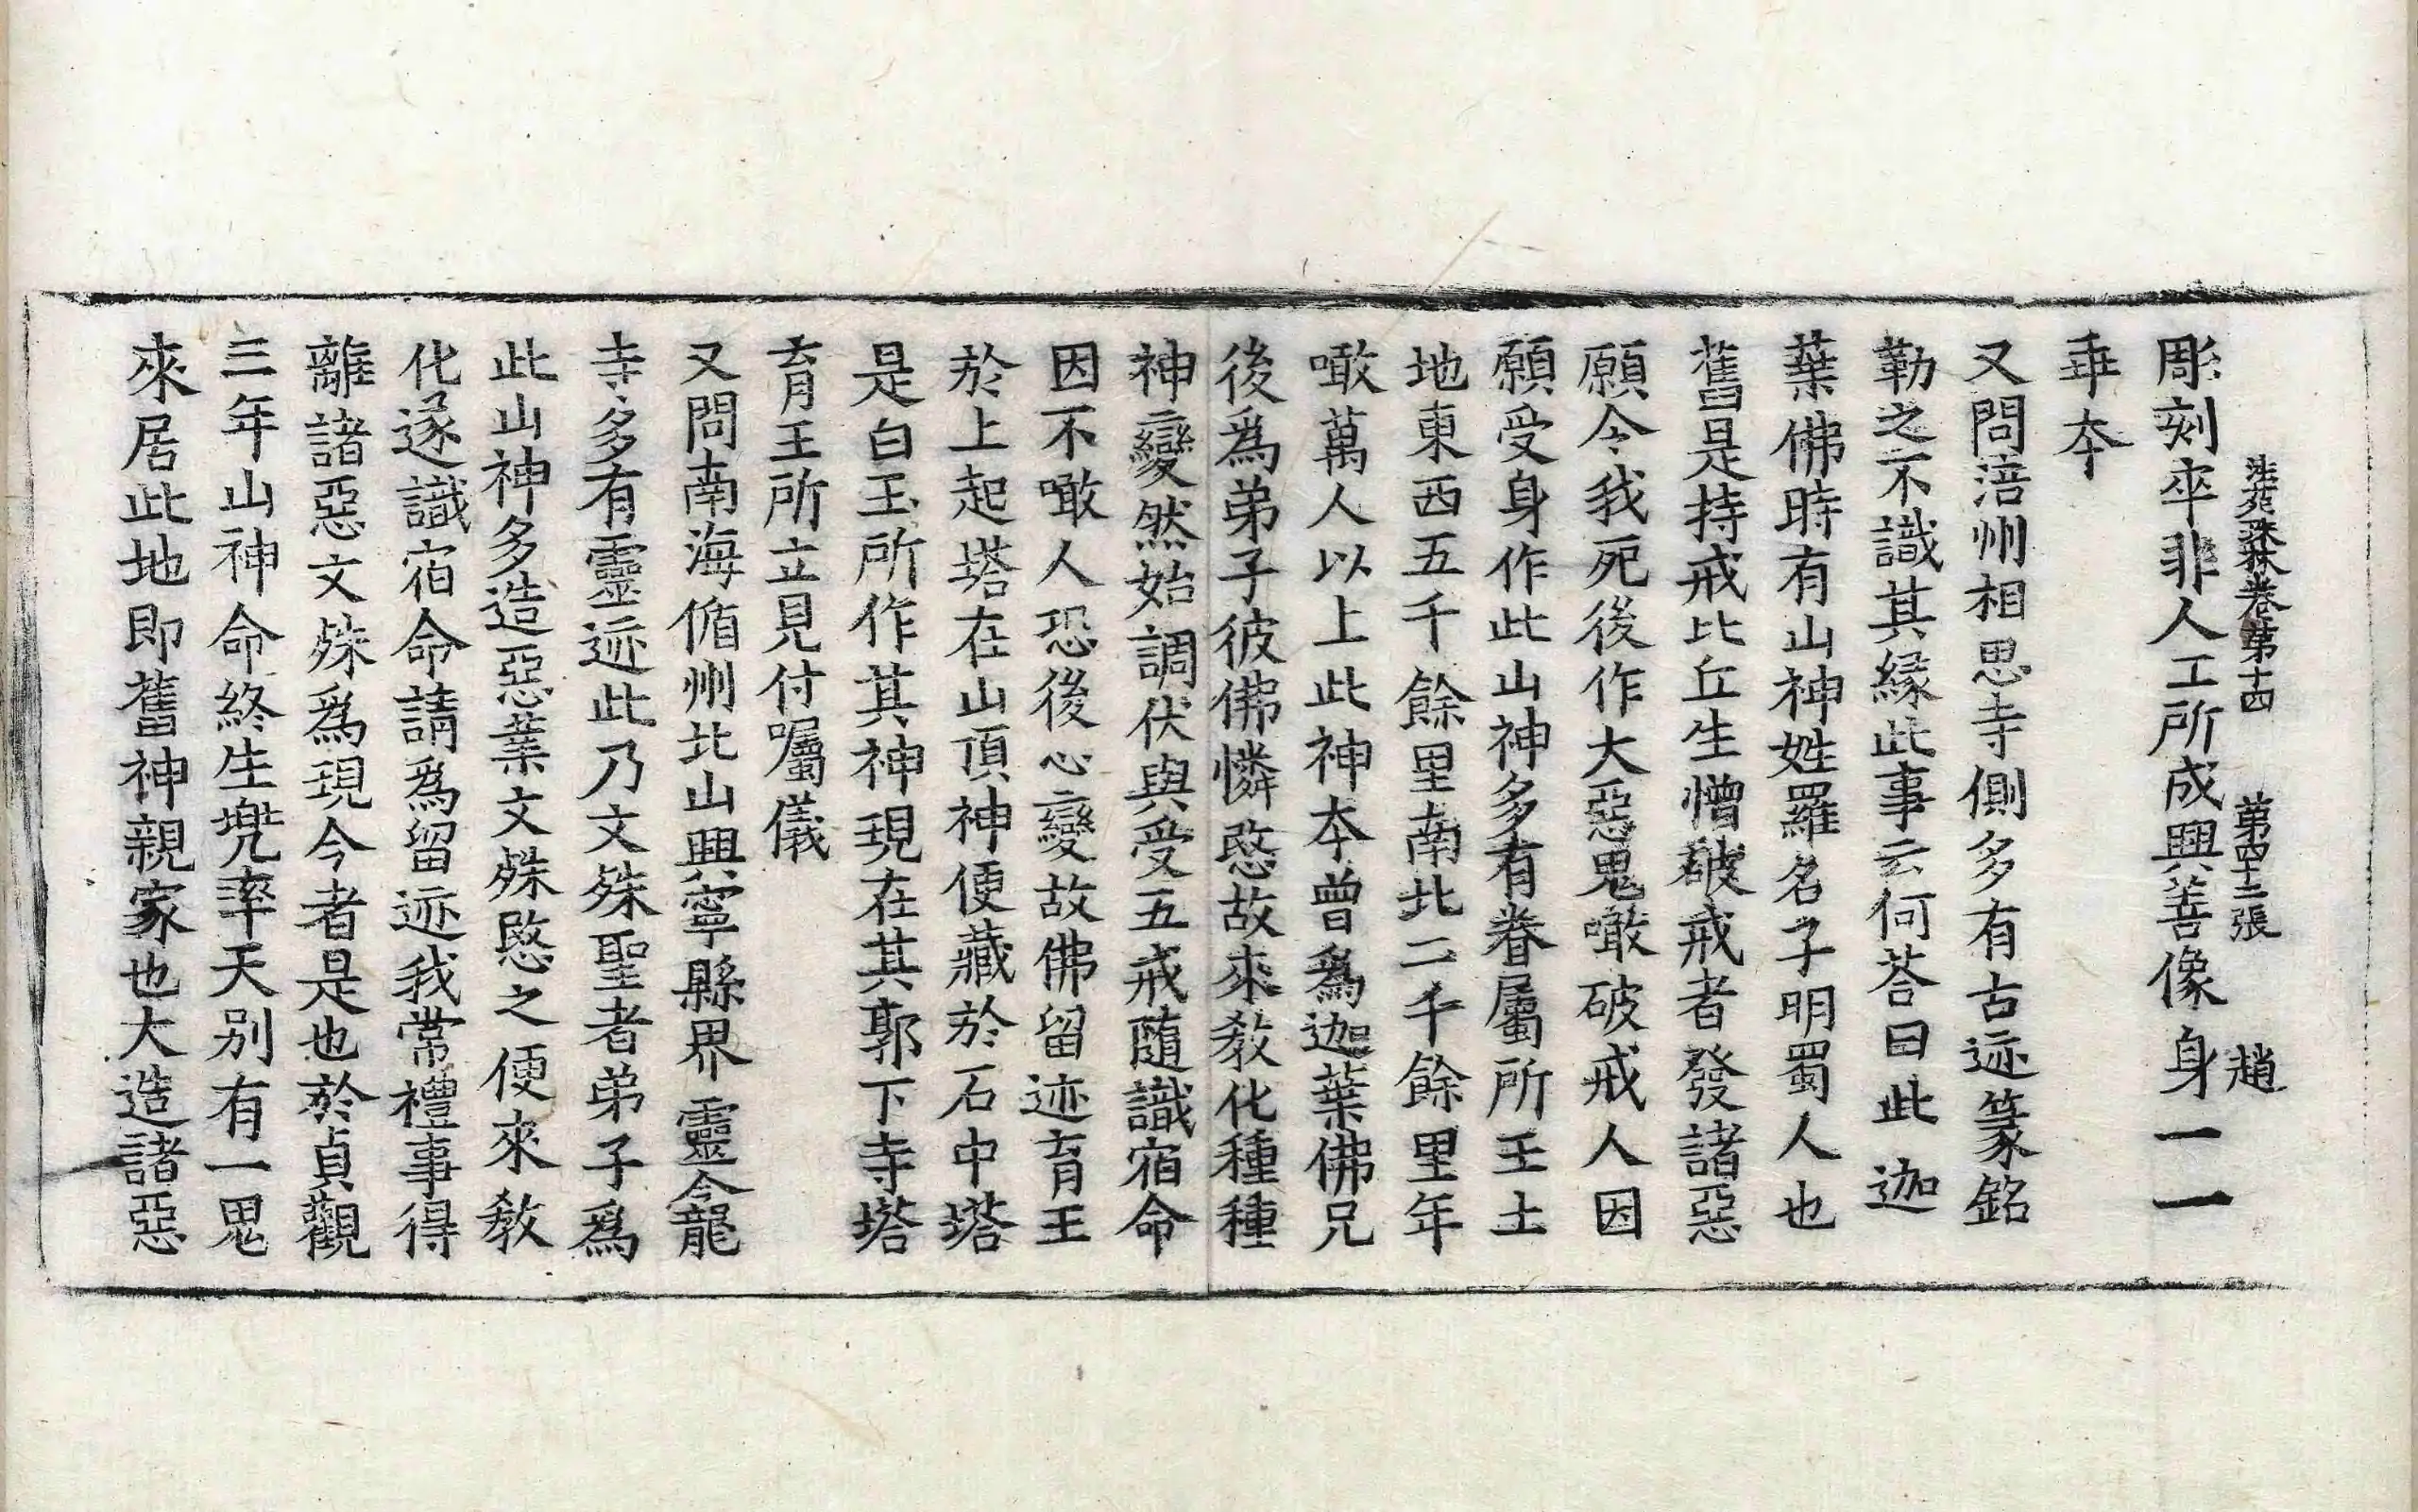 法苑珠林卷第十四 第四十二張 趙
彫刻卒非人工所成興善像身一一
乖本
又問涪州相思寺側多有古迹篆銘
勒之不識其緣此事云何荅曰此迦
葉佛時有山神姓羅名子明蜀人也
舊是持戒比丘生憎破戒者發諸惡
願令我死後作大惡鬼噉破戒人因
願受身作此山神多有眷屬所王土
地東西五千餘里南北二千餘里年
噉萬人以上此神夲曾爲迦葉佛兄
後爲弟子彼佛憐愍故來教化種種
神變然始調伏與受五戒隨識宿命
因不噉人恐後心變故佛留迹育王
於上起塔在山頂神便藏於石中塔
是白玉所作其神現在其郭下寺塔
育王所立見付囑儀
又問南海循州北山興寧縣界靈龕
寺多有靈迹此乃文殊聖者弟子爲
此山神多造惡業文殊愍之便來教
化遂識宿命請爲留迹我常禮事得
離諸惡文殊爲現今者是也於貞觀
三年山神命終生兠率天別有一鬼
來居此地即舊神親家也大造諸惡